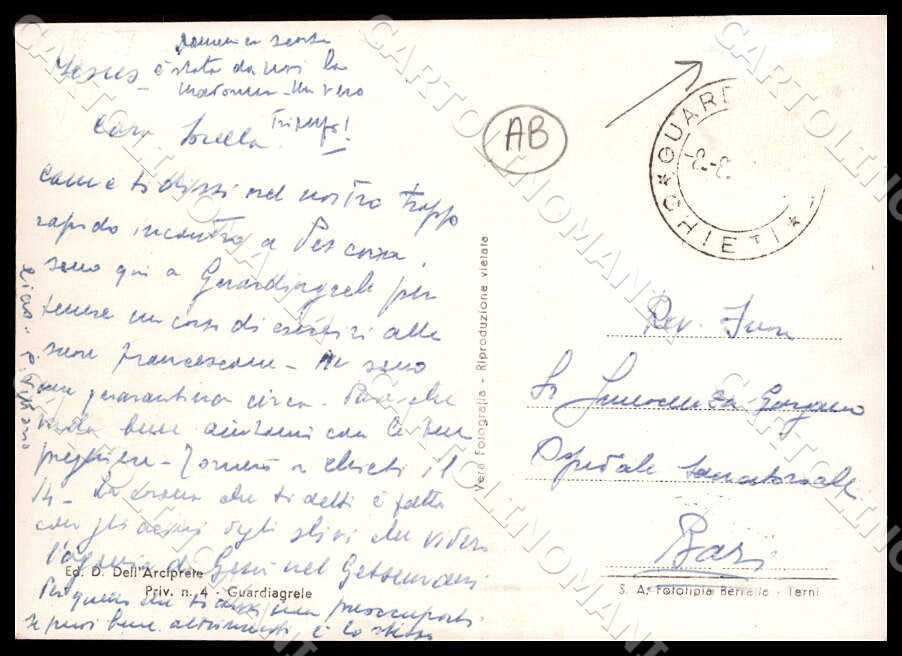 Domenica scorsa
è stata da noi la
Madonna - Un vero
Trionfo!
Jesus
Cara Sorella
come ti dissi nel nostro troppo
rapido incontro a Pescara,
sono qui a Guardiagrele per
tenere un corso di esercizi alle
suore francescane - Ne sono
una quarantina circa. Pare che
vada bene aiutami con le tue
preghiere - Tornerò a Chieti il
14 - La corona che ti detti è fatta
con gli acini degli ulivi che videro
l'agonia di Gesù nel Getsemani
Per quello che ti dissi non preoccuparti
se puoi bene altrimenti è lo stesso
Ciao
Ed. D. Dell'Arciprete
Priv. n. 4 - Guardiagrele
Vera Fotografia - Riproduzione vietata
AB
GUARD
CHIETI
Rev. Suor
Sr Innocenza Gargano
Ospedale Sanatoriale
Bari
S. A. Fototipia Berretta - Terni
CARTOLINOMANIA